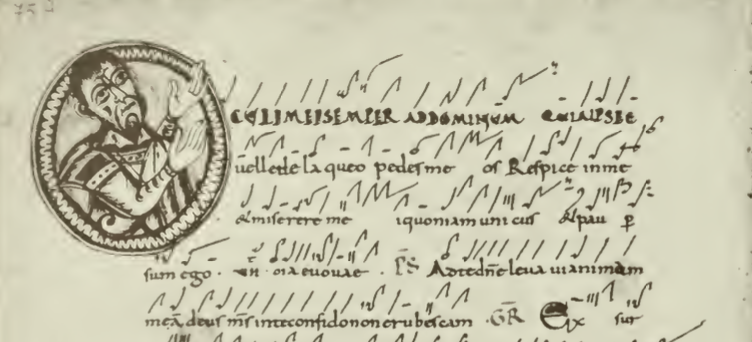 75
OCULI MEI SEMPER AD DOMINUM QUIA IPSE
uellet de laqueo pedes me os Respice in me
& miserere me i quoniam unicus & pau p̄
sum ego . euouae . P̄S Ad te dn̄e leuaui animam
meā deus ms̄ in te confido non erubescam . GR̄ Ex sur